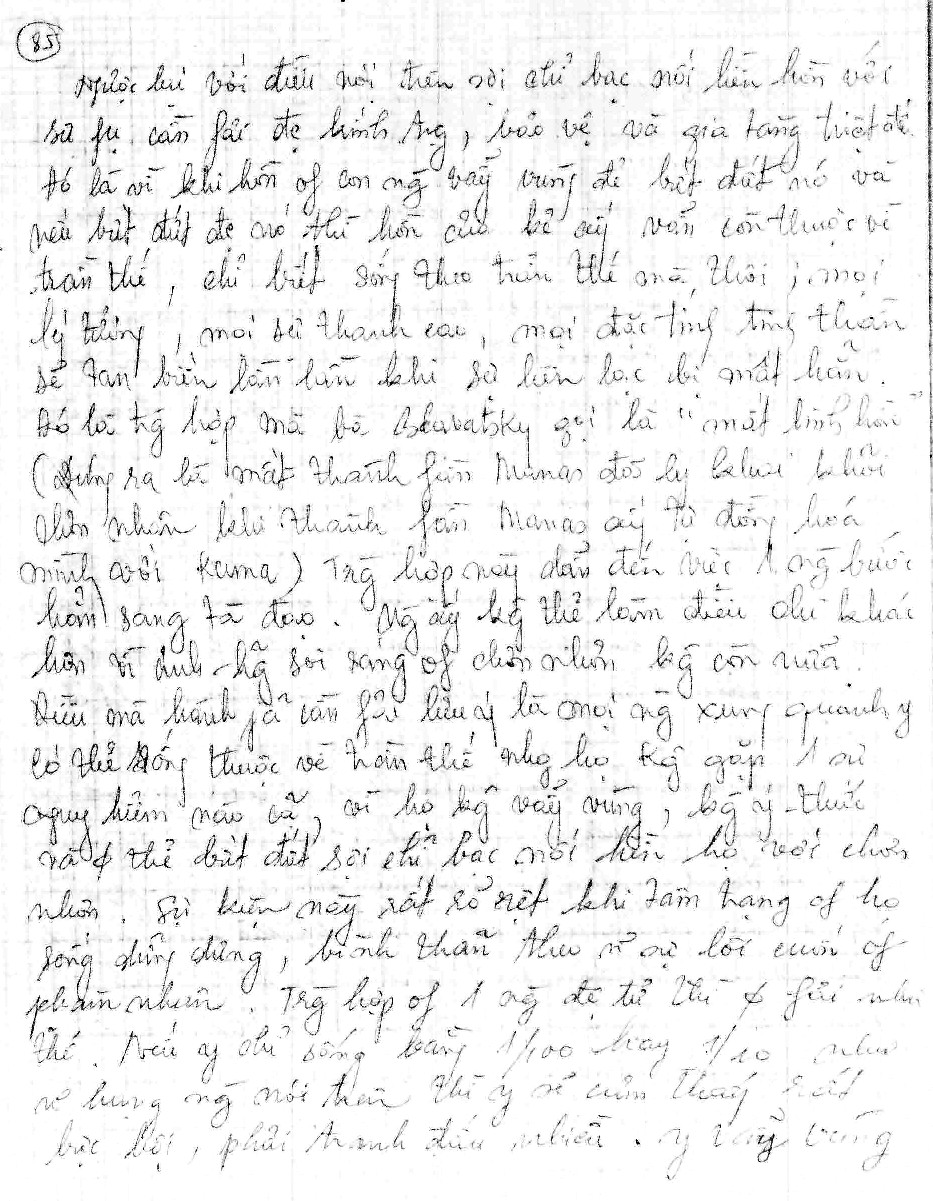 85
Ngược lại với điều nói trên sợi chỉ bạc nối liền hồn với
sự fụ cần fải đc hính trg, bảo vệ và gia tăng triệt để.
Đó là vì khi hồn of con ng̃ vẫy vùng để bứt đứt nó và
nếu bứt đứt đc nó thì hồn của kẻ ấy vẫn còn thuộc về
trần thế, chỉ biết sống theo trần thế mà thôi ; mọi
lý tưởng, mọi sự thanh cao, mọi đặc tính tinh thần
sẽ tan biến lần lần khi sự liên lạc bị mất hẳn.
Đó là trg̃ hợp mà bà Blavatsky gọi là "mất linh hồn"
(Đúng ra là mất thành fần Manas đã ly khai khỏi
chơn nhơn khi thành fần Manas ấy tự đồng hoá
mình với Kama) Trg̃ hợp này dẫn đến việc 1 ng̃ bước
hẳn sang tả đạo. Ng̃ ấy kg̃ thể làm điều chi khác
hơn vì ánh-hg̃ soi sáng of chơn nhơn kg̃ còn nữa.
Điều mà hành jả cần fải lưu ý là mọi ng̃ xung quanh y
có thể sống thuộc về trần thế nhg họ kg̃ gặp 1 sự
nguy hiểm nào cả, vì họ kg̃ vẫy vùng, kg̃ ý-thức
và ¢ thể bứt đứt sợi chỉ bạc nối liền họ với chơn
nhơn. Sự kiện này rất rõ rệt khi tâm trạng of họ
sống dửng dưng, bình thản theo sự lôi cuốn of
phàm nhơn. Trg̃ hợp of 1 ng̃ đệ tử thì ¢ fải như
thế. Nếu y chỉ sống bằng 1/100 hay 1/10 như
những ng̃ nói trên thì y sẽ cảm thấy rất
bực bội, phải tranh đấu nhiều. y vẫy vùng